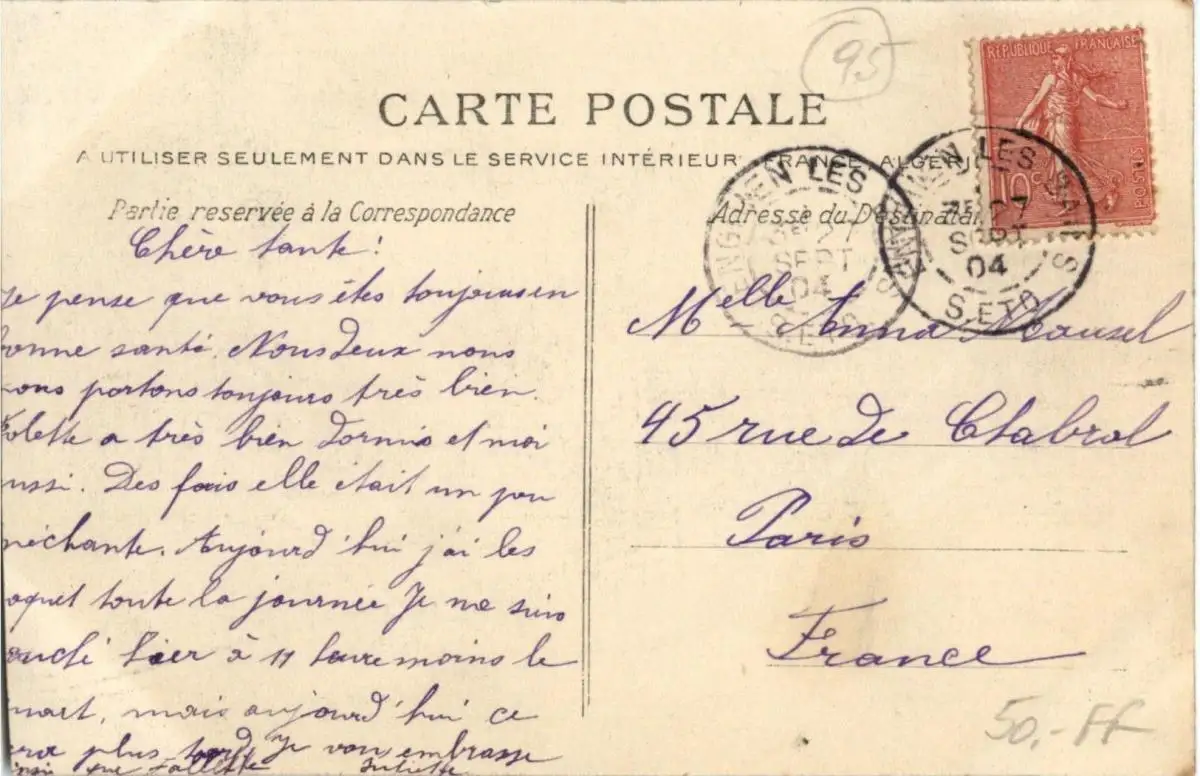 95
CARTE POSTALE
A UTILISER SEULEMENT DANS LE SERVICE INTÉRIEUR FRANCE, ALGÉRI
RÉPUBLIQUE FRANÇAISE
10 c
POSTES
ENGHIEN LES
27
SEPT
04
S.ETO
ENGHIEN LES BAINS
27
SEPT
04
S.ETO
Partie reservée à la Correspondance
Chère tante!
Je pense que vous êtes toujours en
onne santé. Nous deux nous
ous portons toujours très bien.
olette a très bien dormis et moi
ussi. Des fois elle était un peu
échante. Aujourd'hui j'ai les
oquet toute la journée Je me suis
ouché hier à 11 heure moins le
uart, mais aujourd'hui ce
era plus tard Je vous embrasse
insi que Juliette
Adresse du Destinatai
Melle Anna
45 rue de Chabrol
Paris
France
50,- FF